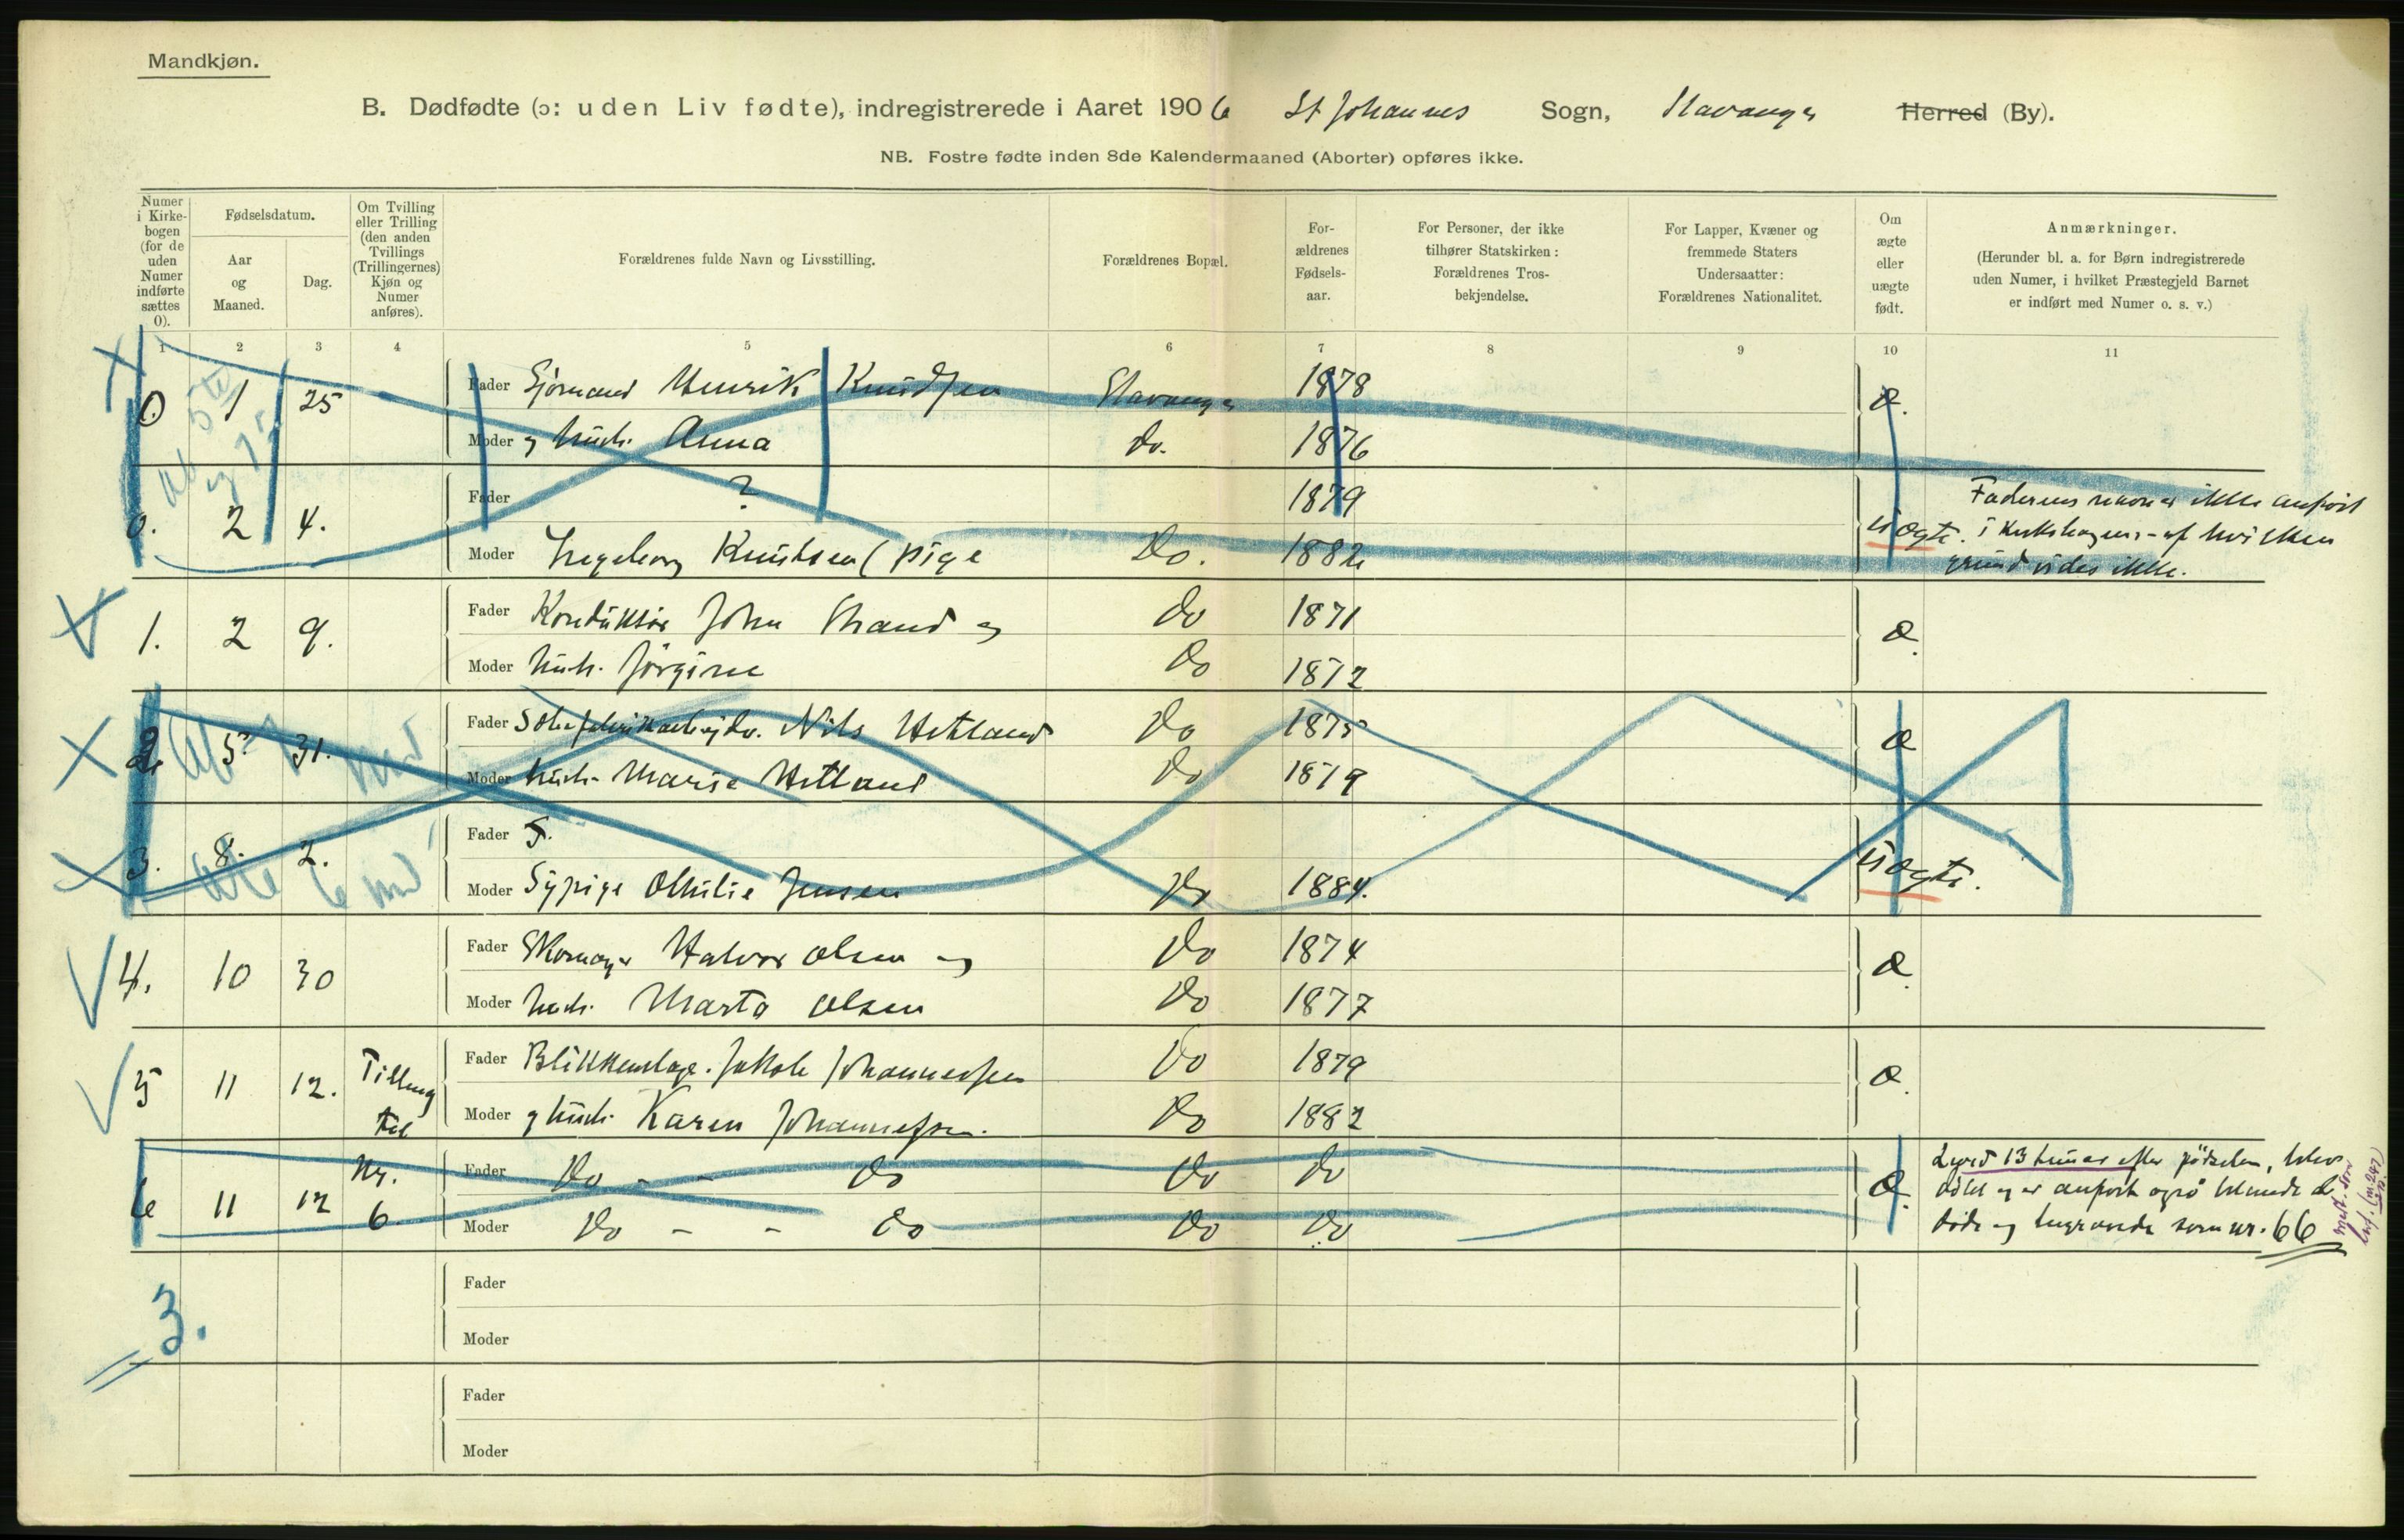 Mandkjøn.
B. Dødfødte (ɔ: uden Liv fødte), indregistrerede i Aaret 1906 St Johannes Sogn, Stavanger Herred (By).
NB. Fostre fødte inden 8de Kalendermaaned (Aborter) opføres ikke.
Numer i Kirkebogen (for de uden Numer indførte sættes 0).
Fødselsdatum.
Aar og Maaned.
Dag.
Om Tvilling eller Trilling (den anden Tvillings (Trillingernes) Kjøn og Numer anføres).
Forældrenes fulde Navn og Livsstilling.
Forældrenes Bopæl.
Forældrenes Fødselsaar.
For Personer, der ikke tilhører Statskirken: Forældrenes Trosbekjendelse.
For Lapper, Kvæner og fremmede Staters Undersaatter: Forældrenes Nationalitet.
Om ægte eller uægte født.
Anmærkninger.
(Herunder bl. a. for Børn indregistrerede uden Numer, i hvilket Præstegjeld Barnet er indført med Numer o. s. v.)
1 2 3 4 5 6 7 8 9 10 11
0. 1 25 Fader Sjømand Henrik Knudsen Stavanger 1878 Æ.
Moder og hustr. Anna do. 1876
0. 2 4. Fader ? 1879 Uægte. Faderens navn er ikke anført
i Kirkebogen - af hvilken
grund vides ikke.
Moder Ingeborg Knudsen (pige Do. 1882
1. 2 9. Fader Konduktør John Strand og do 1871 Æ.
Moder hustr. Jørgine do 1872
2. 5. 31. Fader Nils Hetland Do 1875 Æ
Moder hustr. Marie Hetland Do 1879
3. 8. 2. Fader Uægte.
Moder Sypige Othilie Jensen Do 1884.
4. 10 30 Fader Skomager Halvor Olsen og Do 1874 Æ.
Moder hustr. Marta Olsen Do 1877
5 11 12. Tvilling til Fader Blikkenslager. Jakob Johannessen Do 1879 Æ.
Moder og hustr. Karen Johannessen. Do 1882
6 11 12 Nr. 6. Fader Do - - do Do do Æ.
Moder Do - - do Do do
Leved 13 timer efter fødselen, blev
døbt og er anført også blandt de
døde og begravede som nr. 66
Fader
Moder
3.
Fader
Moder